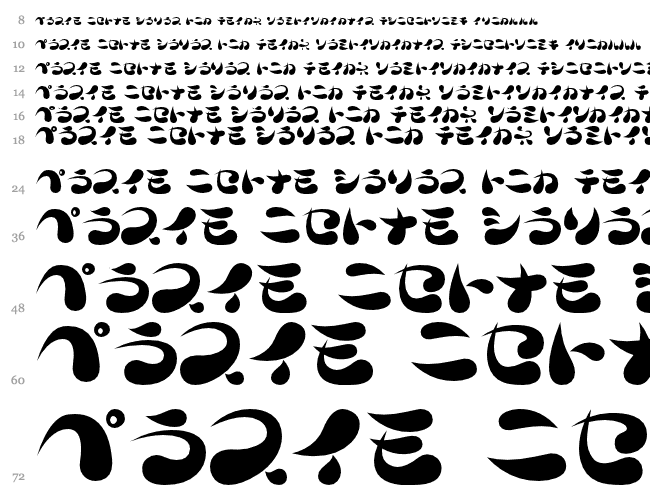 8 ペラスイモ ニセトナモ シラリラス トニカ チモイカ ソラミトイソカイカナイス チシニセニトソニミキ イリニカ
10 ペラスイモ ニセトナモ シラリラス トニカ チモイカ ソラミトイソカイカナイス チシニセニトソニミキ イリニカ
12 ペラスイモ ニセトナモ シラリラス トニカ チモイカ ソラミトイソカイカナイス チシニセニトソニミ
14 ペラスイモ ニセトナモ シラリラス トニカ チモイカ ソラミトイソカイカナイス チ
16 ペラスイモ ニセトナモ シラリラス トニカ チモイカ ソラミトイソカイカ
18 ペラスイモ ニセトナモ シラリラス トニカ チモイカ ソラミトイソ
24 ペラスイモ ニセトナモ シラリラス トニカ チモイ
36 ペラスイモ ニセトナモ シラリラ
48 ペラスイモ ニセトナモ
60 ペラスイモ ニセト
72 ペラスイモ ニセ